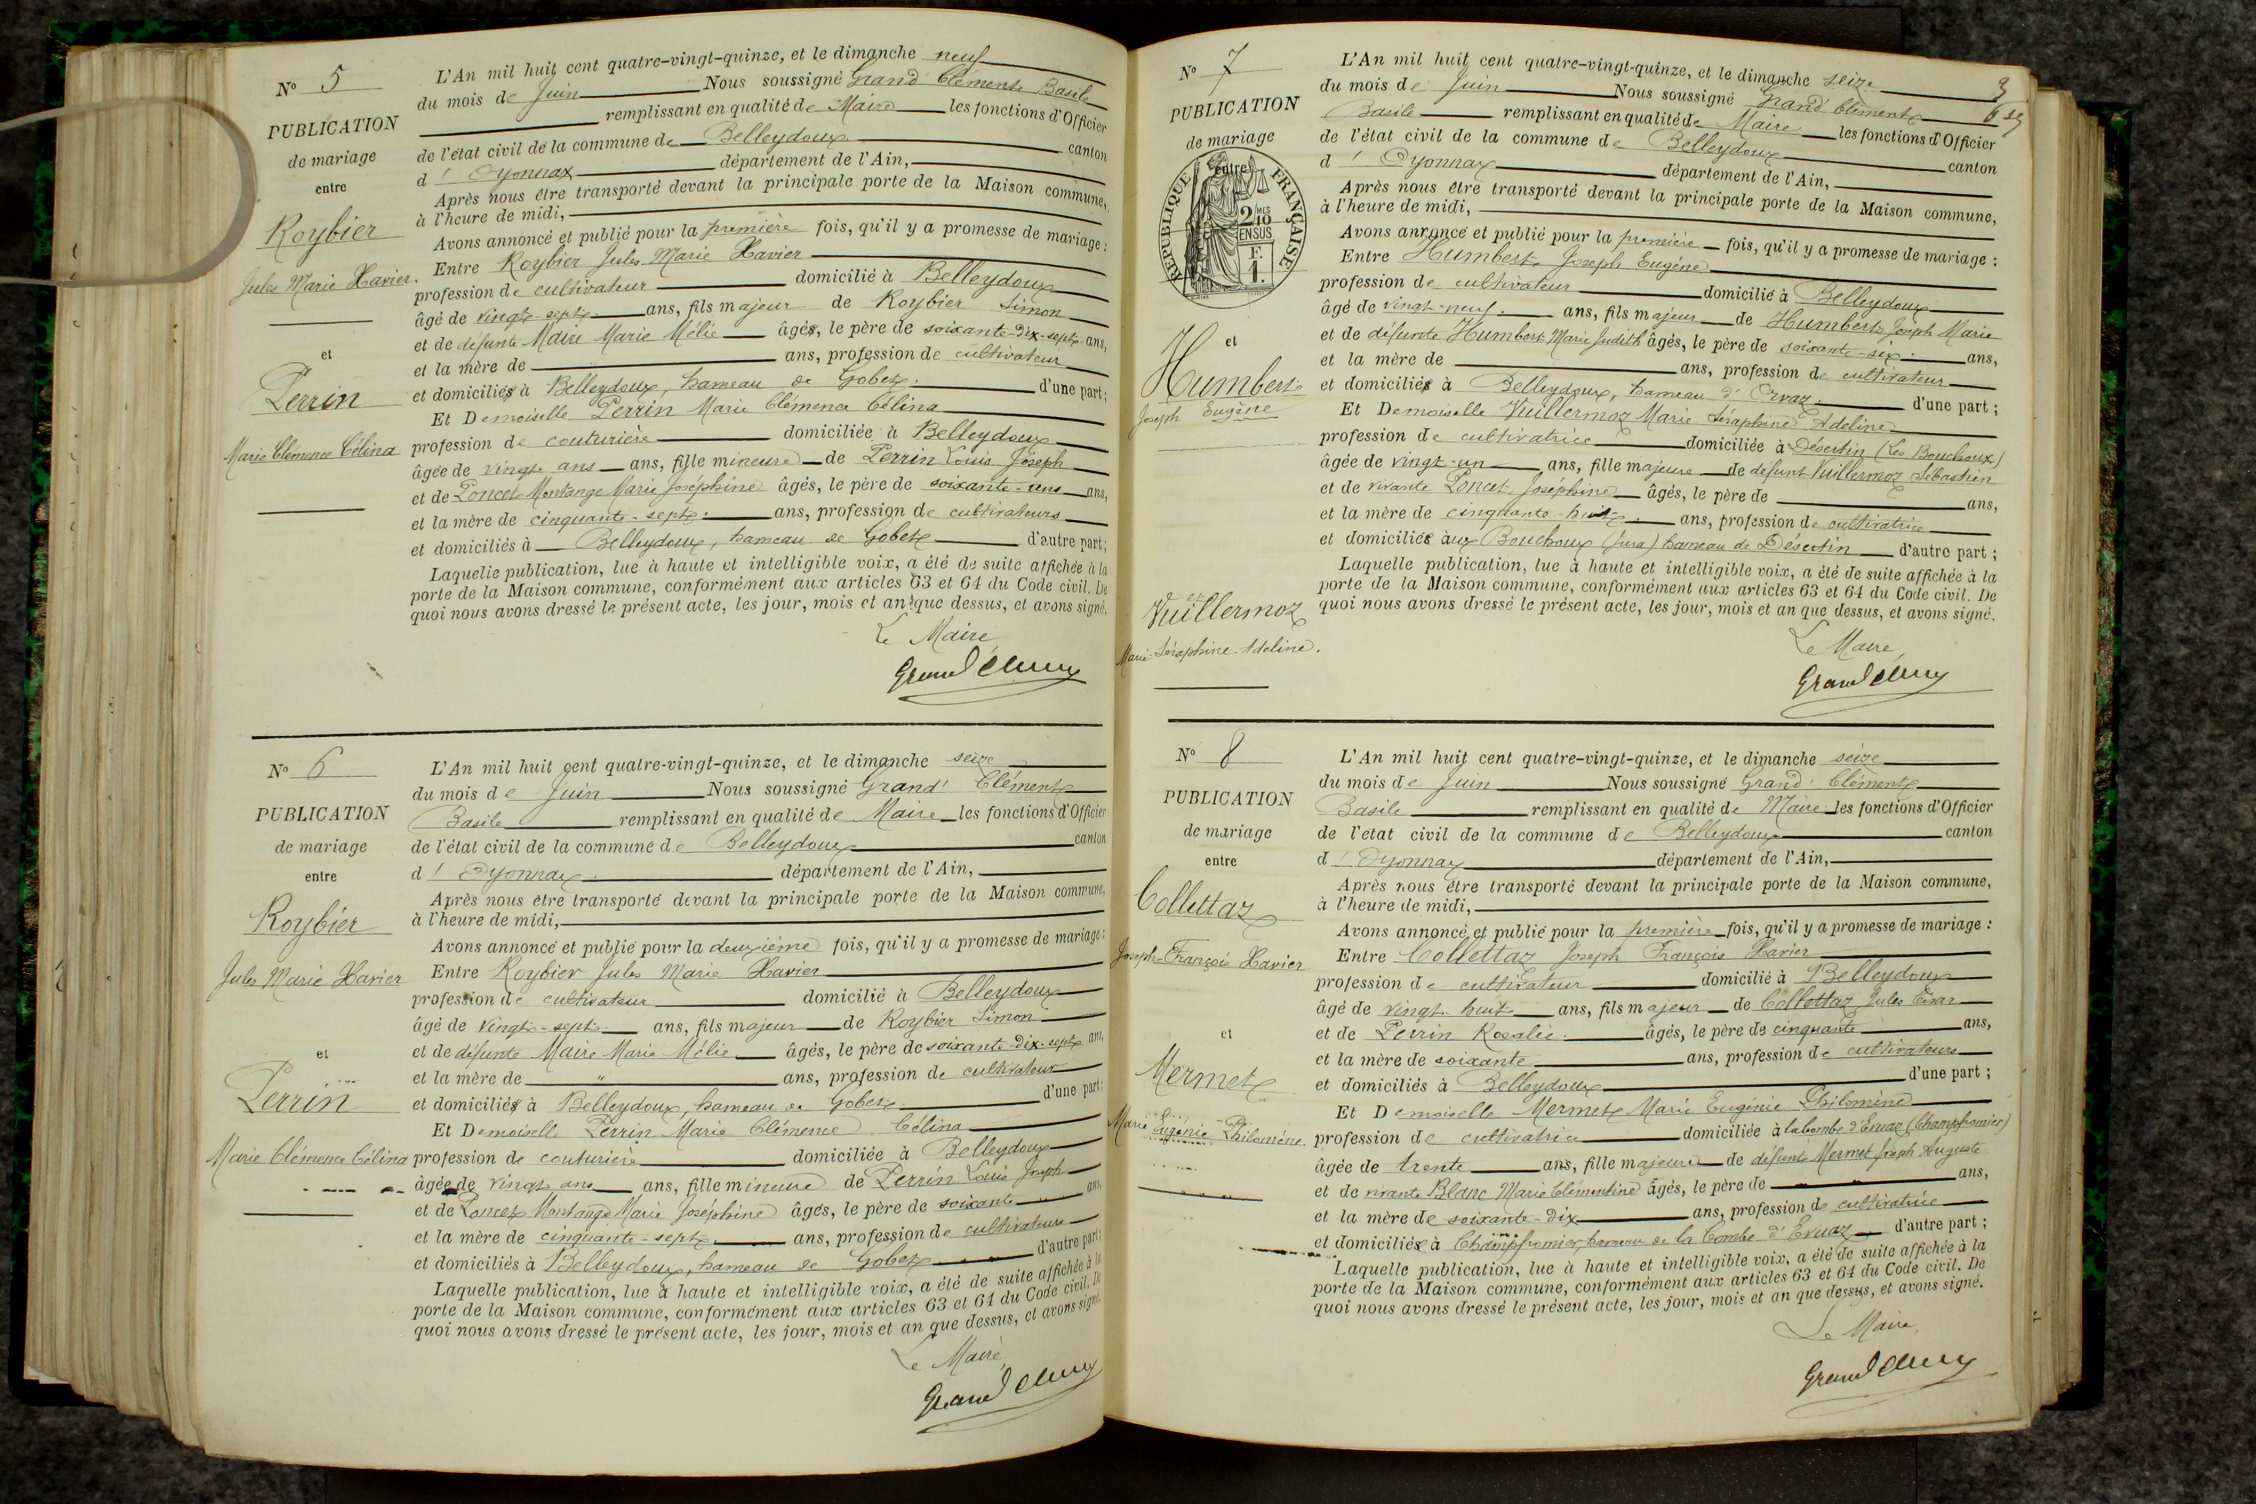 N° 5
PUBLICATION
de mariage
entre
Roybier
Jules Marie Xavier.
et
Perrin
Marie Clémence Célina
L'An mil huit cent quatre-vingt-quinze, et le dimanche neuf
du mois de Juin Nous soussigné Grand' Clément Basile
remplissant en qualité de Maire les fonctions d'Officier
de l'état civil de la commune de Belleydoux canton
d'Oyonnax département de l'Ain,
Après nous être transporté devant la principale porte de la Maison commune,
à l'heure de midi,
Avons annoncé et publié pour la première fois, qu'il y a promesse de mariage :
Entre Roybier Jules Marie Xavier
profession de cultivateur domicilié à Belleydoux
âgé de vingt-sept ans, fils majeur de Roybier Simon
et de defunte Maire Marie Mélie âgés, le père de soixante-dix-sept ans,
et la mère de ans, profession de cultivateur
et domiciliés à Belleydoux, hameau de Gobet. d'une part ;
Et Demoiselle Perrin Marie Clémence Célina
profession de couturière domiciliée à Belleydoux
âgée de vingt ans ans, fille mineure de Perrin Louis Joseph
et de Poncet Montange Marie Joséphine âgés, le père de soixante-ans ans,
et la mère de cinquante-sept. ans, profession de cultivateurs
et domiciliés à Belleydoux, hameau de Gobet d'autre part ;
Laquelle publication, lue à haute et intelligible voix, a été de suite affichée à la
porte de la Maison commune, conformément aux articles 63 et 64 du Code civil. De
quoi nous avons dressé le présent acte, les jour, mois et an que dessus, et avons signé.
Le Maire
Grand'Clément
N° 6
PUBLICATION
de mariage
entre
Roybier
Jules Marie Xavier
et
Perrin
Marie Clémence Célina
L'An mil huit cent quatre-vingt-quinze, et le dimanche seize
du mois de Juin Nous soussigné Grand' Clément
Basile remplissant en qualité de Maire les fonctions d'Officier
de l'état civil de la commune de Belleydoux canton
d'Oyonnax. département de l'Ain,
Après nous être transporté devant la principale porte de la Maison commune,
à l'heure de midi,
Avons annoncé et publié pour la deuxième fois, qu'il y a promesse de mariage :
Entre Roybier Jules Marie Xavier
profession de cultivateur domicilié à Belleydoux
âgé de vingt-sept. ans, fils majeur de Roybier Simon
et de défunte Maire Marie Mélie âgés, le père de soixante-dix-sept ans,
et la mère de " ans, profession de cultivateur
et domiciliés à Belleydoux, hameau de Gobet. d'une part ;
Et Demoiselle Perrin Marie Clémence Célina
profession de couturière domiciliée à Belleydoux
âgée de vingt ans ans, fille mineure de Perrin Louis Joseph
et de Poncet Montange Marie Joséphine âgés, le père de soixante ans,
et la mère de cinquante-sept. ans, profession de cultivateurs
et domiciliés à Belleydoux, hameau de Gobet d'autre part ;
Laquelle publication, lue à haute et intelligible voix, a été de suite affichée à la
porte de la Maison commune, conformément aux articles 63 et 64 du Code civil. De
quoi nous avons dressé le présent acte, les jour, mois et an que dessus, et avons signé.
Le Maire
Grand'Clément
3
N° 7
PUBLICATION
de mariage
entre
RÉPUBLIQUE FRANÇAISE
2/10 EN SUS
F. 1.
et
Humbert
Joseph Eugène
et
Vuillermoz
Marie-Séraphine-Adeline.
L'An mil huit cent quatre-vingt-quinze, et le dimanche seize
du mois de Juin Nous soussigné Grand' Clément
Basile remplissant en qualité de Maire les fonctions d'Officier
de l'état civil de la commune de Belleydoux canton
d'Oyonnax département de l'Ain,
Après nous être transporté devant la principale porte de la Maison commune,
à l'heure de midi,
Avons annoncé et publié pour la première fois, qu'il y a promesse de mariage :
Entre Humbert Joseph Eugène
profession de cultivateur domicilié à Belleydoux
âgé de vingt-neuf. ans, fils majeur de Humbert Joseph Marie
et de défunte Humbert Marie Judith âgés, le père de soixante-six. ans,
et la mère de ans, profession de cultivateur
et domiciliés à Belleydoux, hameau d'Orvaz. d'une part ;
Et Demoiselle Vuillermoz Marie Séraphine Adeline
profession de cultivatrice domiciliée à Désertin (Les Bouchoux)
âgée de vingt-un ans, fille majeure de defunt Vuillermoz Sébastien
et de vivante Poncet Joséphine âgés, le père de ans,
et la mère de cinquante-huit. ans, profession de cultivatrice
et domiciliés aux Bouchoux (Jura) hameau de Désertin d'autre part ;
Laquelle publication, lue à haute et intelligible voix, a été de suite affichée à la
porte de la Maison commune, conformément aux articles 63 et 64 du Code civil. De
quoi nous avons dressé le présent acte, les jour, mois et an que dessus, et avons signé.
Le Maire
Grand'Clément
N° 8
PUBLICATION
de mariage
entre
Collettaz
Joseph-François Xavier
et
Mermet
Marie Eugénie Philomène.
L'An mil huit cent quatre-vingt-quinze, et le dimanche seize
du mois de Juin Nous soussigné Grand' Clément
Basile remplissant en qualité de Maire les fonctions d'Officier
de l'état civil de la commune de Belleydoux canton
d'Oyonnax département de l'Ain,
Après nous être transporté devant la principale porte de la Maison commune,
à l'heure de midi,
Avons annoncé et publié pour la première fois, qu'il y a promesse de mariage :
Entre Collettaz Joseph François Xavier
profession de cultivateur domicilié à Belleydoux
âgé de vingt-huit ans, fils majeur de Collettaz Jules
et de Perrin Rosalie. âgés, le père de cinquante ans,
et la mère de soixante ans, profession de cultivateurs
et domiciliés à Belleydoux d'une part ;
Et Demoiselle Mermet Marie Eugénie Philomène
profession de cultivatrice domiciliée à la combe d'Evuaz (Champfromier)
âgée de trente ans, fille majeure de défunt Mermet Joseph Auguste
et de vivante Blanc Marie Clémentine âgés, le père de ans,
et la mère de soixante-dix ans, profession de cultivatrice
et domiciliés à Champfromier, hameau de la Combe d'Evuaz d'autre part ;
Laquelle publication, lue à haute et intelligible voix, a été de suite affichée à la
porte de la Maison commune, conformément aux articles 63 et 64 du Code civil. De
quoi nous avons dressé le présent acte, les jour, mois et an que dessus, et avons signé.
Le Maire,
Grand'Clément